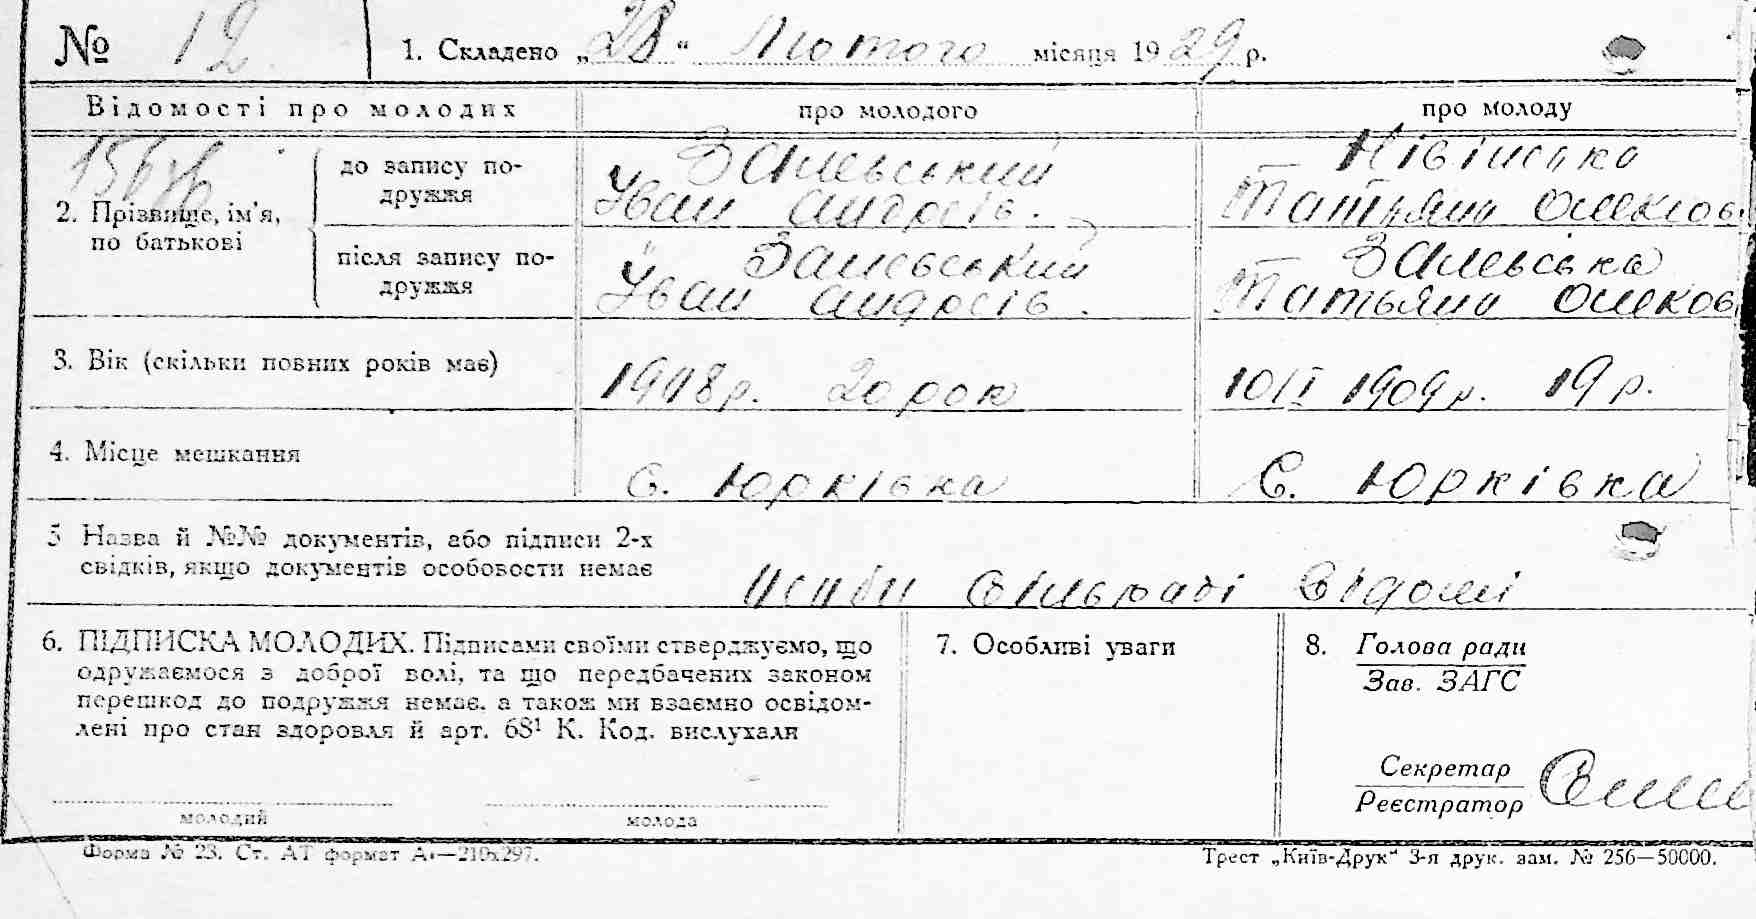 № 12 1. Складено „23“ Лютого місяця 1929 р.
Відомості про молодих про молодого про молоду
2. Прізвище, ім'я, по батькові
до запису по-
дружжя
Залевський
Іван Андреїв.
Татьяна Олексов
після запису по-
дружжя
Залевський
Іван Андреїв.
Залевська
Татьяна Олеков
3. Вік (скільки повних років має) 20 рок 10/I 1909 р. 19 р.
4. Місце мешкання с. Юрківка С. Юрківка
5 Назва й №№ документів, або підписи 2-х
свідків, якщо документів особовости немає
Особи Сільраді Відомі
6. ПІДПИСКА МОЛОДИХ. Підписами своїми стверджуємо, що
одружаємося з доброї волі, та що передбачених законом
перешкод до подружжя немає, а також ми взаємно освідом-
лені про стан здоровля й арт. 68¹ К. Код. вислухали
молодий молода
7. Особливі уваги
8. Голова ради
Зав. ЗАГС
Секретар
Реєстратор
Форма № 23. Ст. АТ формат А₄—210х297. Трест „Київ-Друк“ 3-я друк. зам. № 256—50000.